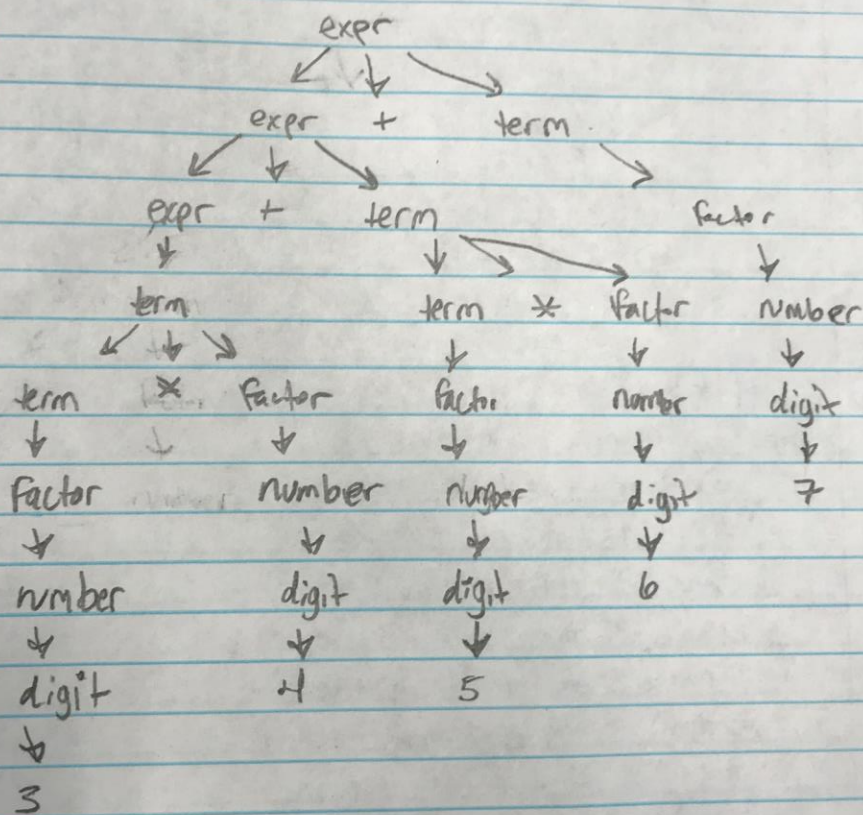 expr
expr + term
expr + term factor
term term * factor number
term * factor factor number digit
factor number number digit 7
number digit digit 6
digit 4 5
3